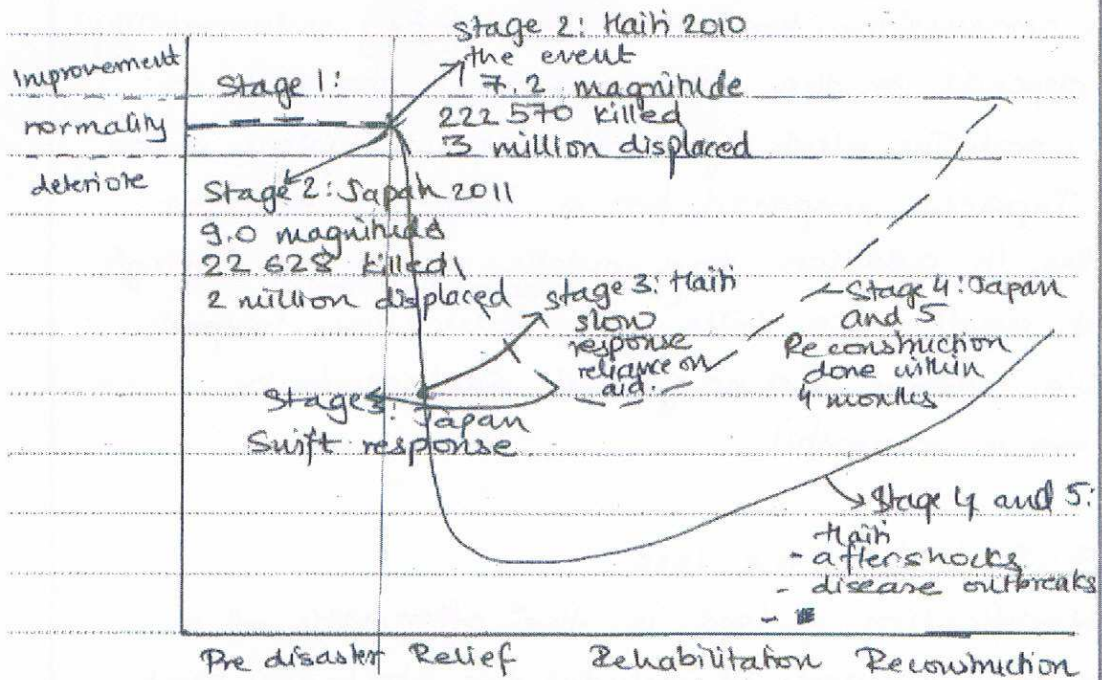 Improvement
normality
deteriore
Stage 1:
Stage 2: Haiti 2010
the event
7.2 magnitude
222 570 killed
3 million displaced
Stage 2: Japan 2011
9.0 magnitude
22 628 killed
2 million displaced
Stage 3: Haiti
slow
response
reliance on
aid.
Stage 3: Japan
Swift response
Stage 4: Japan
and 5
Reconstruction
done within
4 months
Stage 4 and 5:
Haiti
- aftershocks
- disease outbreaks
-
Pre disaster Relief Rehabilitation Reconstruction